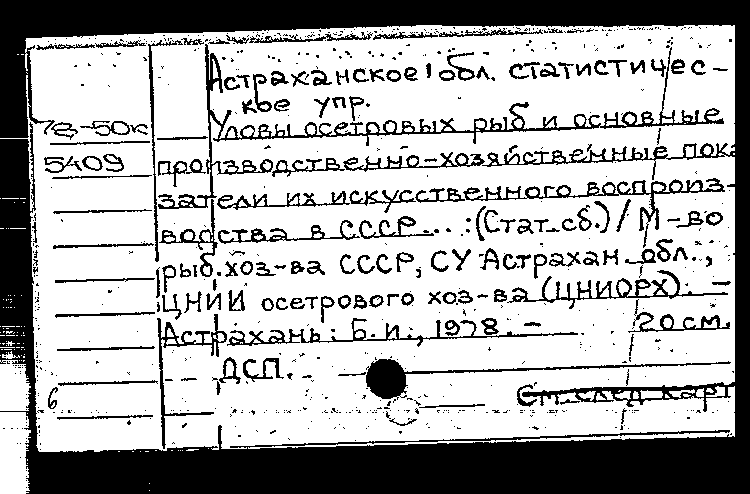 Астраханское обл. статистичес-
кое упр.
78-50к Уловы осетровых рыб и основные
5409 производственно-хозяйственные пока
затели их искусственного воспроиз-
водства в СССР... :(Стат.сб.)/ М-во
рыб.хоз-ва СССР, СУ Астрахан.обл.,
ЦНИИ осетрового хоз-ва (ЦНИОРХ). -
Астрахань: Б.и., 1978. - 20см.
ДСП.
См.след.карт
6